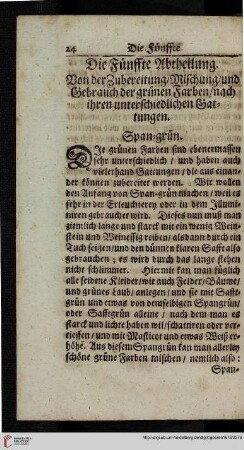 24 Die Fünffte
Die Fünffte Abtheilung.
Von der Zubereitung/Mischung/und
Gebrauch der grünen Farben/nach
ihren unterschiedlichen Gat-
tungen.
Span-grün.
Die grünen Farben sind ebenermassen
sehr unterschiedlich / und haben auch
vielerhand Gattungen / die aus einan-
der können zubereitet werden. Wir wollen
den Anfang von Span-grün machen / weil es
sehr in der Erleuchterey oder in dem Illumi-
niren gebrauchet wird. Dieses nun muß man
ziemlich lange und starck mit ein wenig Wein-
stein und Weinessig reiben / alsdann durch ein
Tuch seigen / und den dünnen klaren Safft also
gebrauchen ; es wird durch das lange stehen
nicht schlimmer. Hiermit kan man füglich
alle seidene Kleider / wie auch Felder / Bäume/
und grünes Laub / anlegen / und sie mit Safft-
grün und etwas von demselbigen Spangrün/
oder Safftgrün alleine / nach dem man es
starck und lichte haben wil / schattiren oder ver-
tieffen / und mit Masticot und etwas Weiß er-
höhe. Aus diesem Spangrün kan man allerley
schöne grüne Farben mischen / nemlich also :
Span-